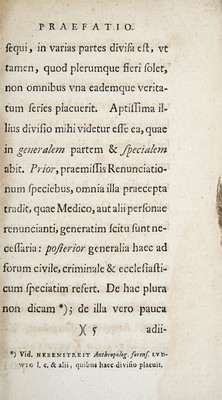 PRAEFATIO.
sequi, in varias partes divisa est, vt
tamen, quod plerumque fieri solet,
non omnibus vna eademque verita-
tum series placuerit. Aptissima il-
lius divisio mihi videtur esse ea, quae
in generalem partem & specialem
abit. Prior, praemissis Renunciatio-
num speciebus, omnia illa praecepta
tradit, quae Medico, aut alii personae
renuncianti, generatim scitu sunt ne-
cessaria: posterior generalia haec ad
forum civile, criminale & ecclesiasti-
cum speciatim refert. De hac plura
non dicam *); de illa vero pauca
)( 5 adii-
*) Vid. HEBENSTREIT Anthropolog. forens. LVD-
WIG l. c. & alii, quibus haec divisio placuit.